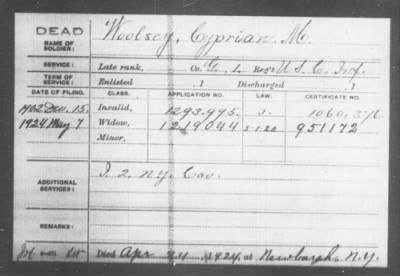 DEAD
NAME OF SOLDIER: Woolsey, Cyprian M.
SERVICE: Late rank, Co. G, 1, Reg't U.S.C. Inf.
TERM OF SERVICE: Enlisted , 1 Discharged , 1
DATE OF FILING. CLASS. APPLICATION NO. LAW. CERTIFICATE NO.
1902 Dec. 15, Invalid, 1293.995. 1060.376
1924 May 7 Widow, 1219044 951172
Minor,
ADDITIONAL SERVICES: I 2, N.Y. Cav.
REMARKS:
Died Apr 1924, at Newburgh, N.Y.